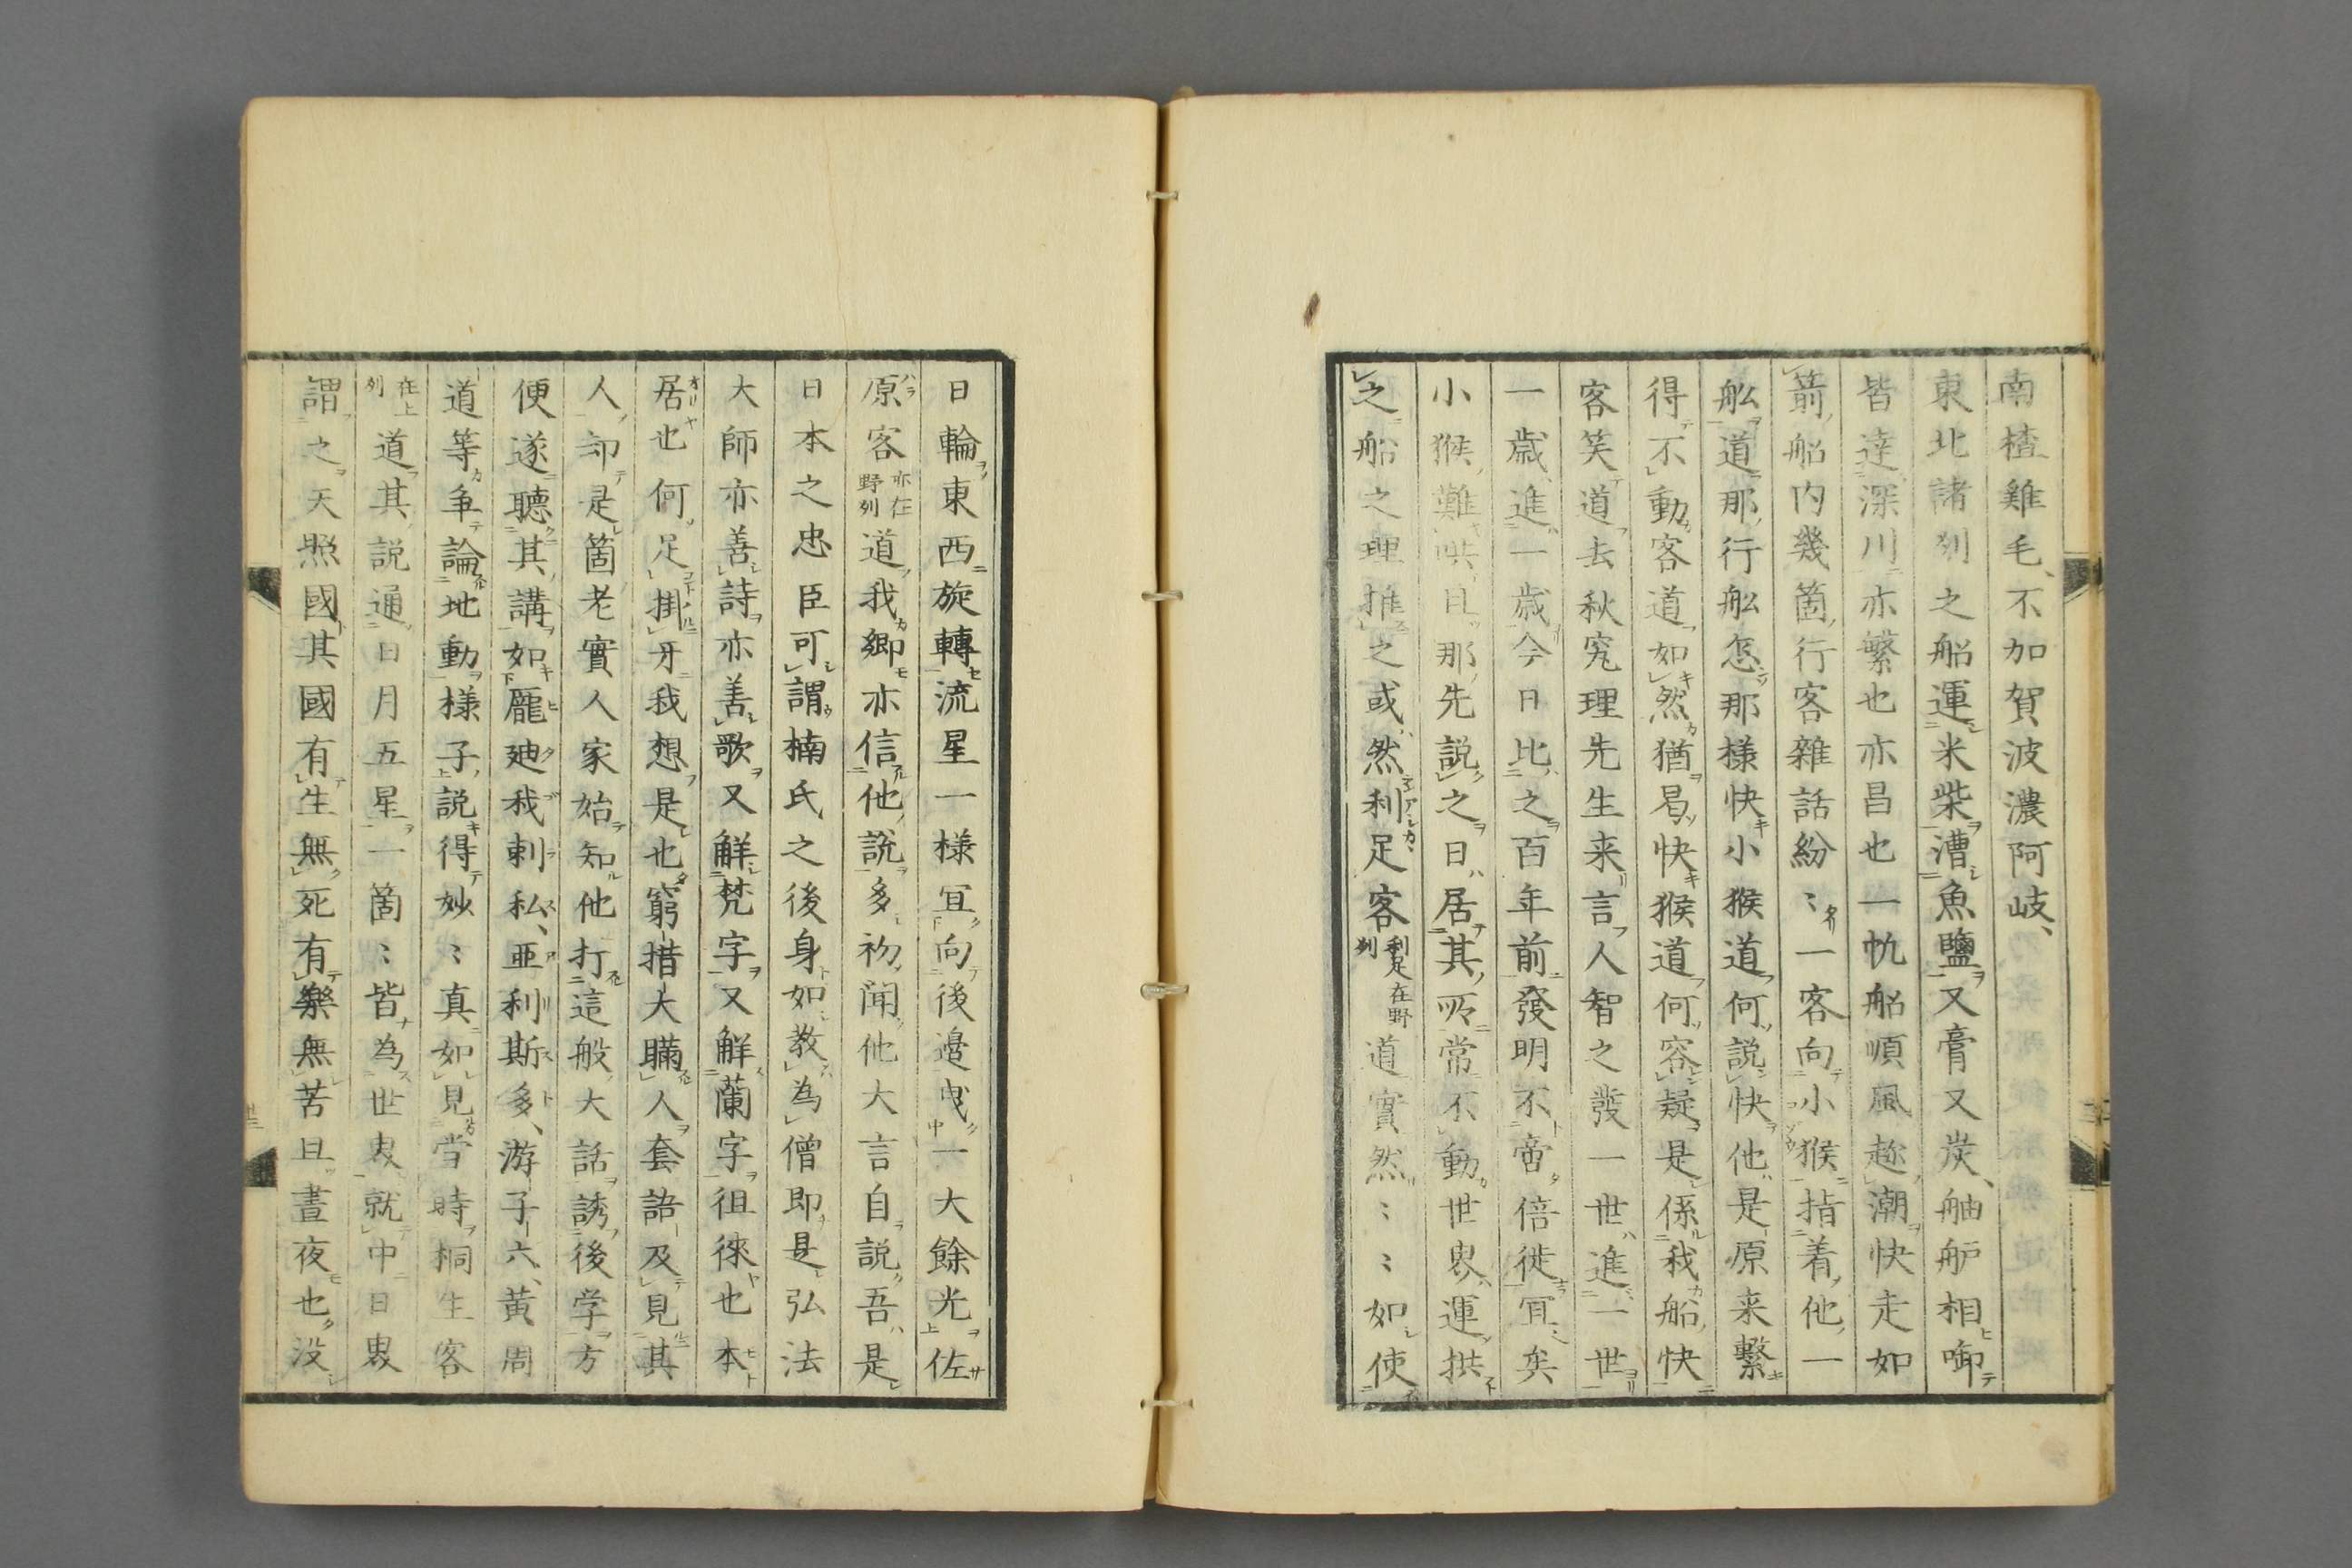 南楂雞毛、不加賀波濃阿岐、
東北諸州之船運米柴漕魚鹽又膏又炭、舳舮相啣
皆達深川亦繁也亦昌也一帆船順風趂潮快走如
箭船內幾箇行客雜話紛〻一客向小猴指着他一
舩道那行舩怎那樣快小猴道何說快他是原来繋
得不動客道如然猶曷快猴道何容疑是係我船快
客笑道去秋究理先生来言人智之發一世進一世
一歲進一歲今日比之百年前發明不啻倍徙冝矣
小猴難哄且那先說之日居其所常不動世界運拱
之船之理推之或然利足客利足在野州道實然〻〻如使
日輪東西旋轉流星一樣冝向後邉曳一大餘光佐
原客亦在野州道我鄉亦信他說多初聞他大言自說吾是
日本之忠臣可謂楠氏之後身如教為僧即是弘法
大師亦善詩亦善歌又解梵字又解蘭字徂徠也本
居也何足掛牙我想是也窮措大瞞人套語及見其
人却是箇老實人家始知他打這般大話誘後学方
便遂聽其講如龎廸我剌私、亜利斯多、游子六、黄周
道等争論地動樣子說得妙〻真如見當時桐生客
在上州道其說通日月五星一箇〻皆為世界就中日界
謂之天照國其國有生無死有樂無苦旦晝夜也没